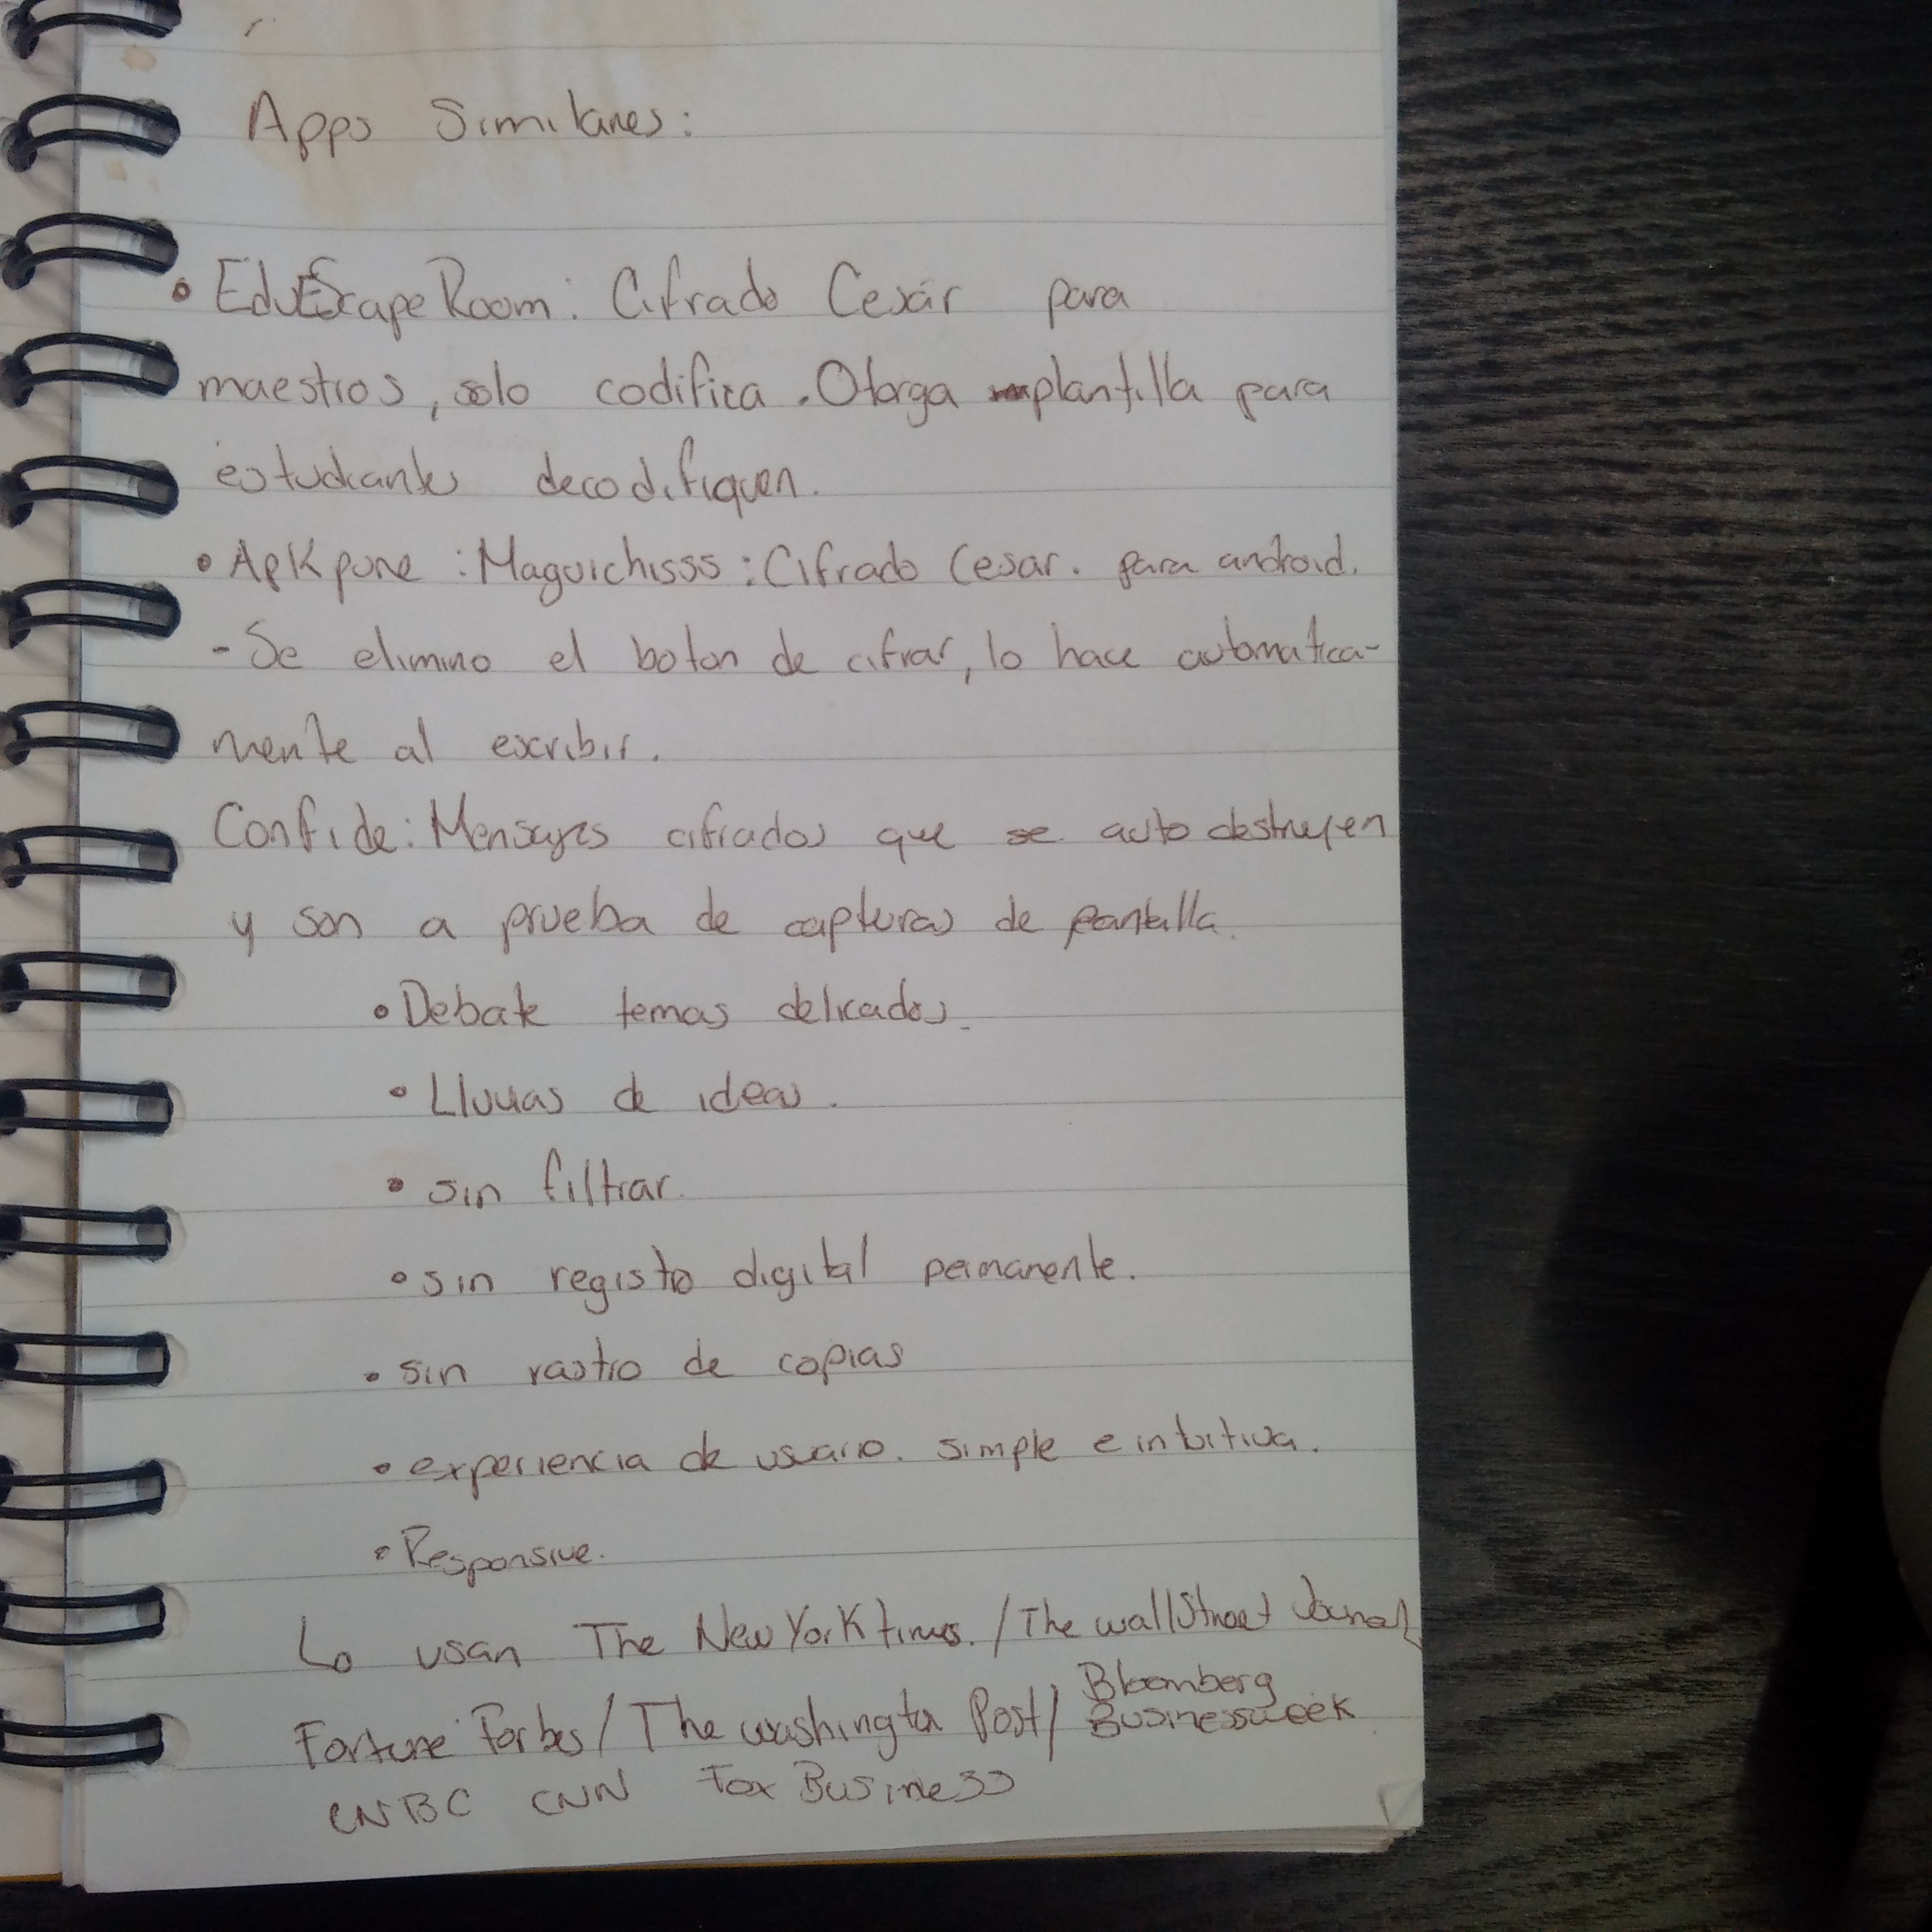 Apps Similares:
• EduEscapeRoom: Cifrado Cesár para
maestros, solo codifica. Otorga plantilla para
estudiantes decodifiquen.
• ApKpune : Maguichisss : Cifrado Cesar. para android.
- Se elimino el boton de cifrar, lo hace automatica-
mente al escribir.
Confide: Mensajes cifrados que se auto destruyen
y son a prueba de capturas de pantalla.
• Debate temas delicados.
• Lluvias de ideas.
• sin filtrar.
• sin registro digital permanente.
• sin rastro de copias
• experiencia de usuario. simple e intuitiva.
• Responsive.
Lo usan The New York times. / The wall Street Journal
Fortune Forbes / The washington Post / Bloomberg
Businessweek
CNBC CNN Fox Business